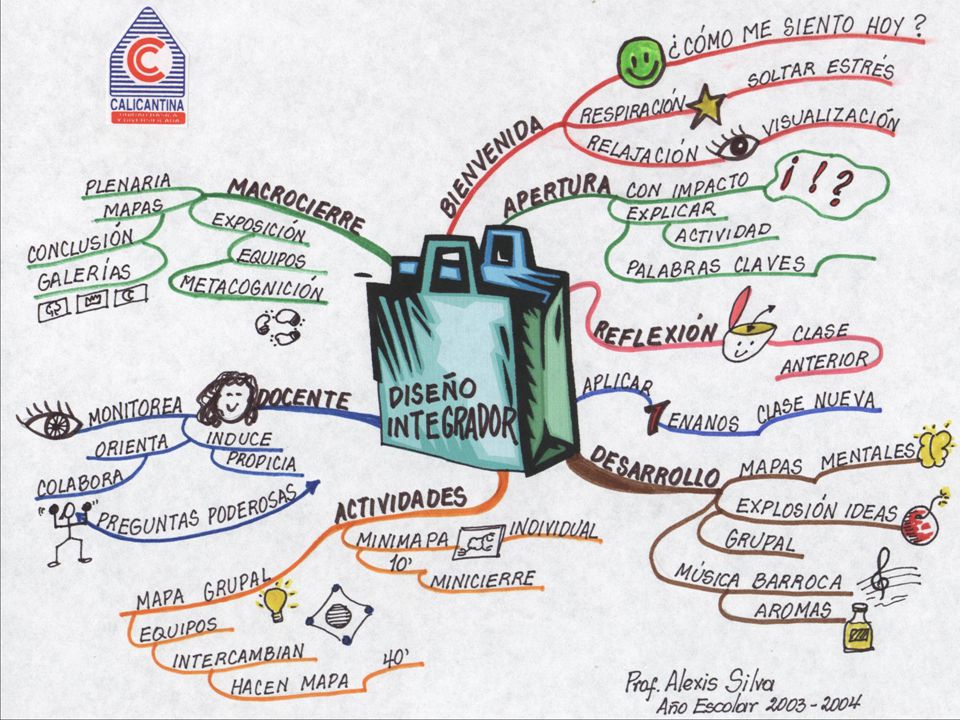 CALICANTINA
UNIDAD BÁSICA
Y DIVERSIFICADA
DISEÑO
INTEGRADOR
BIENVENIDA
¿CÓMO ME SIENTO HOY?
RESPIRACIÓN
SOLTAR ESTRÉS
RELAJACIÓN
VISUALIZACIÓN
APERTURA
CON IMPACTO
¡!?
EXPLICAR
ACTIVIDAD
PALABRAS CLAVES
REFLEXIÓN
CLASE
ANTERIOR
APLICAR
7 ENANOS CLASE NUEVA
DESARROLLO
MAPAS MENTALES
EXPLOSIÓN IDEAS
GRUPAL
MÚSICA BARROCA
AROMAS
ACTIVIDADES
MINIMAPA
INDIVIDUAL
10'
MINICIERRE
MAPA GRUPAL
EQUIPOS
INTERCAMBIAN
HACEN MAPA
40'
DOCENTE
MONITOREA
ORIENTA
COLABORA
INDUCE
PROPICIA
PREGUNTAS PODEROSAS
MACROCIERRE
PLENARIA
MAPAS
CONCLUSIÓN
GALERÍAS
EXPOSICIÓN
EQUIPOS
METACOGNICIÓN
Prof. Alexis Silva
Año Escolar 2003-2004